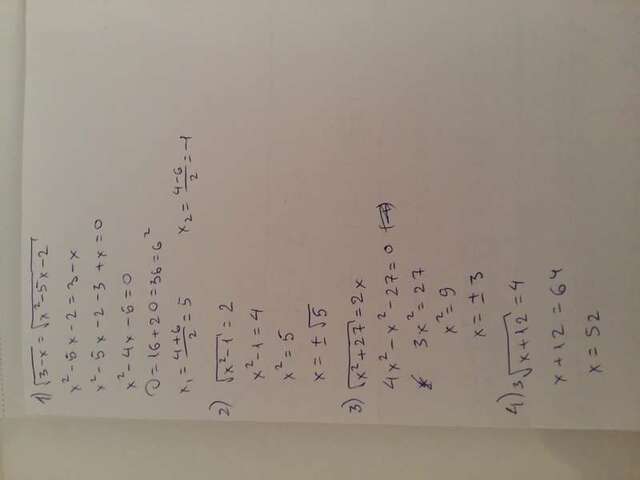 1) √(3-x) = √(x²-5x-2)
x²-5x-2 = 3-x
x²-5x-2-3+x=0
x²-4x-5=0
D=16+20=36=6²
x₁ = (4+6)/2 = 5 x₂ = (4-6)/2 = -1
2) √(x²-1) = 2
x²-1=4
x²=5
x=±√5
3) √(x²+27) = 2x
4x²-x²-27=0
3x²=27
x²=9
x=±3
4) ³√(x+12) = 4
x+12=64
x=52